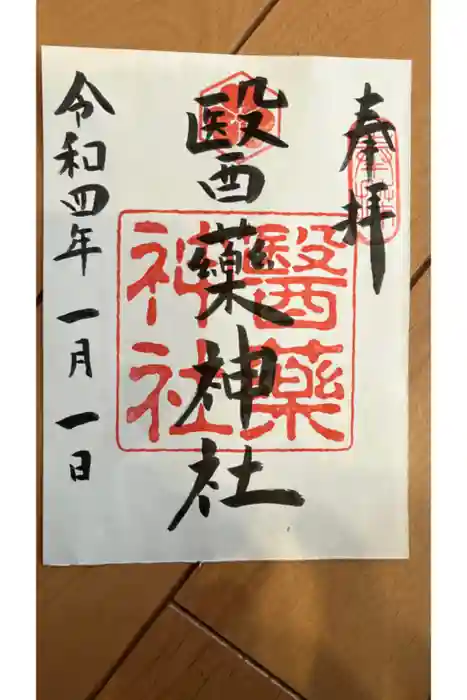 奉拝
醫藥神社
醫藥
神社
令和四年 一月 一日